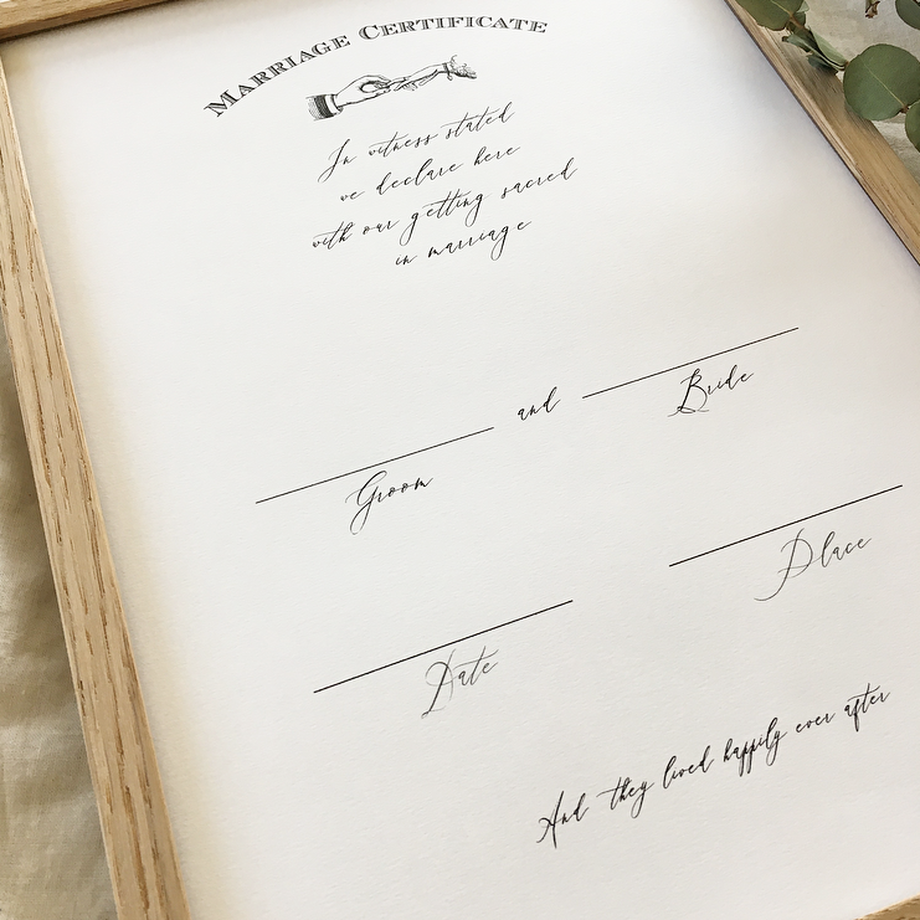 MARRIAGE CERTIFICATE
In witness stated
we declare here
with our getting sacred
in marriage
and
Groom
Bride
Date
Place
And they lived happily ever after